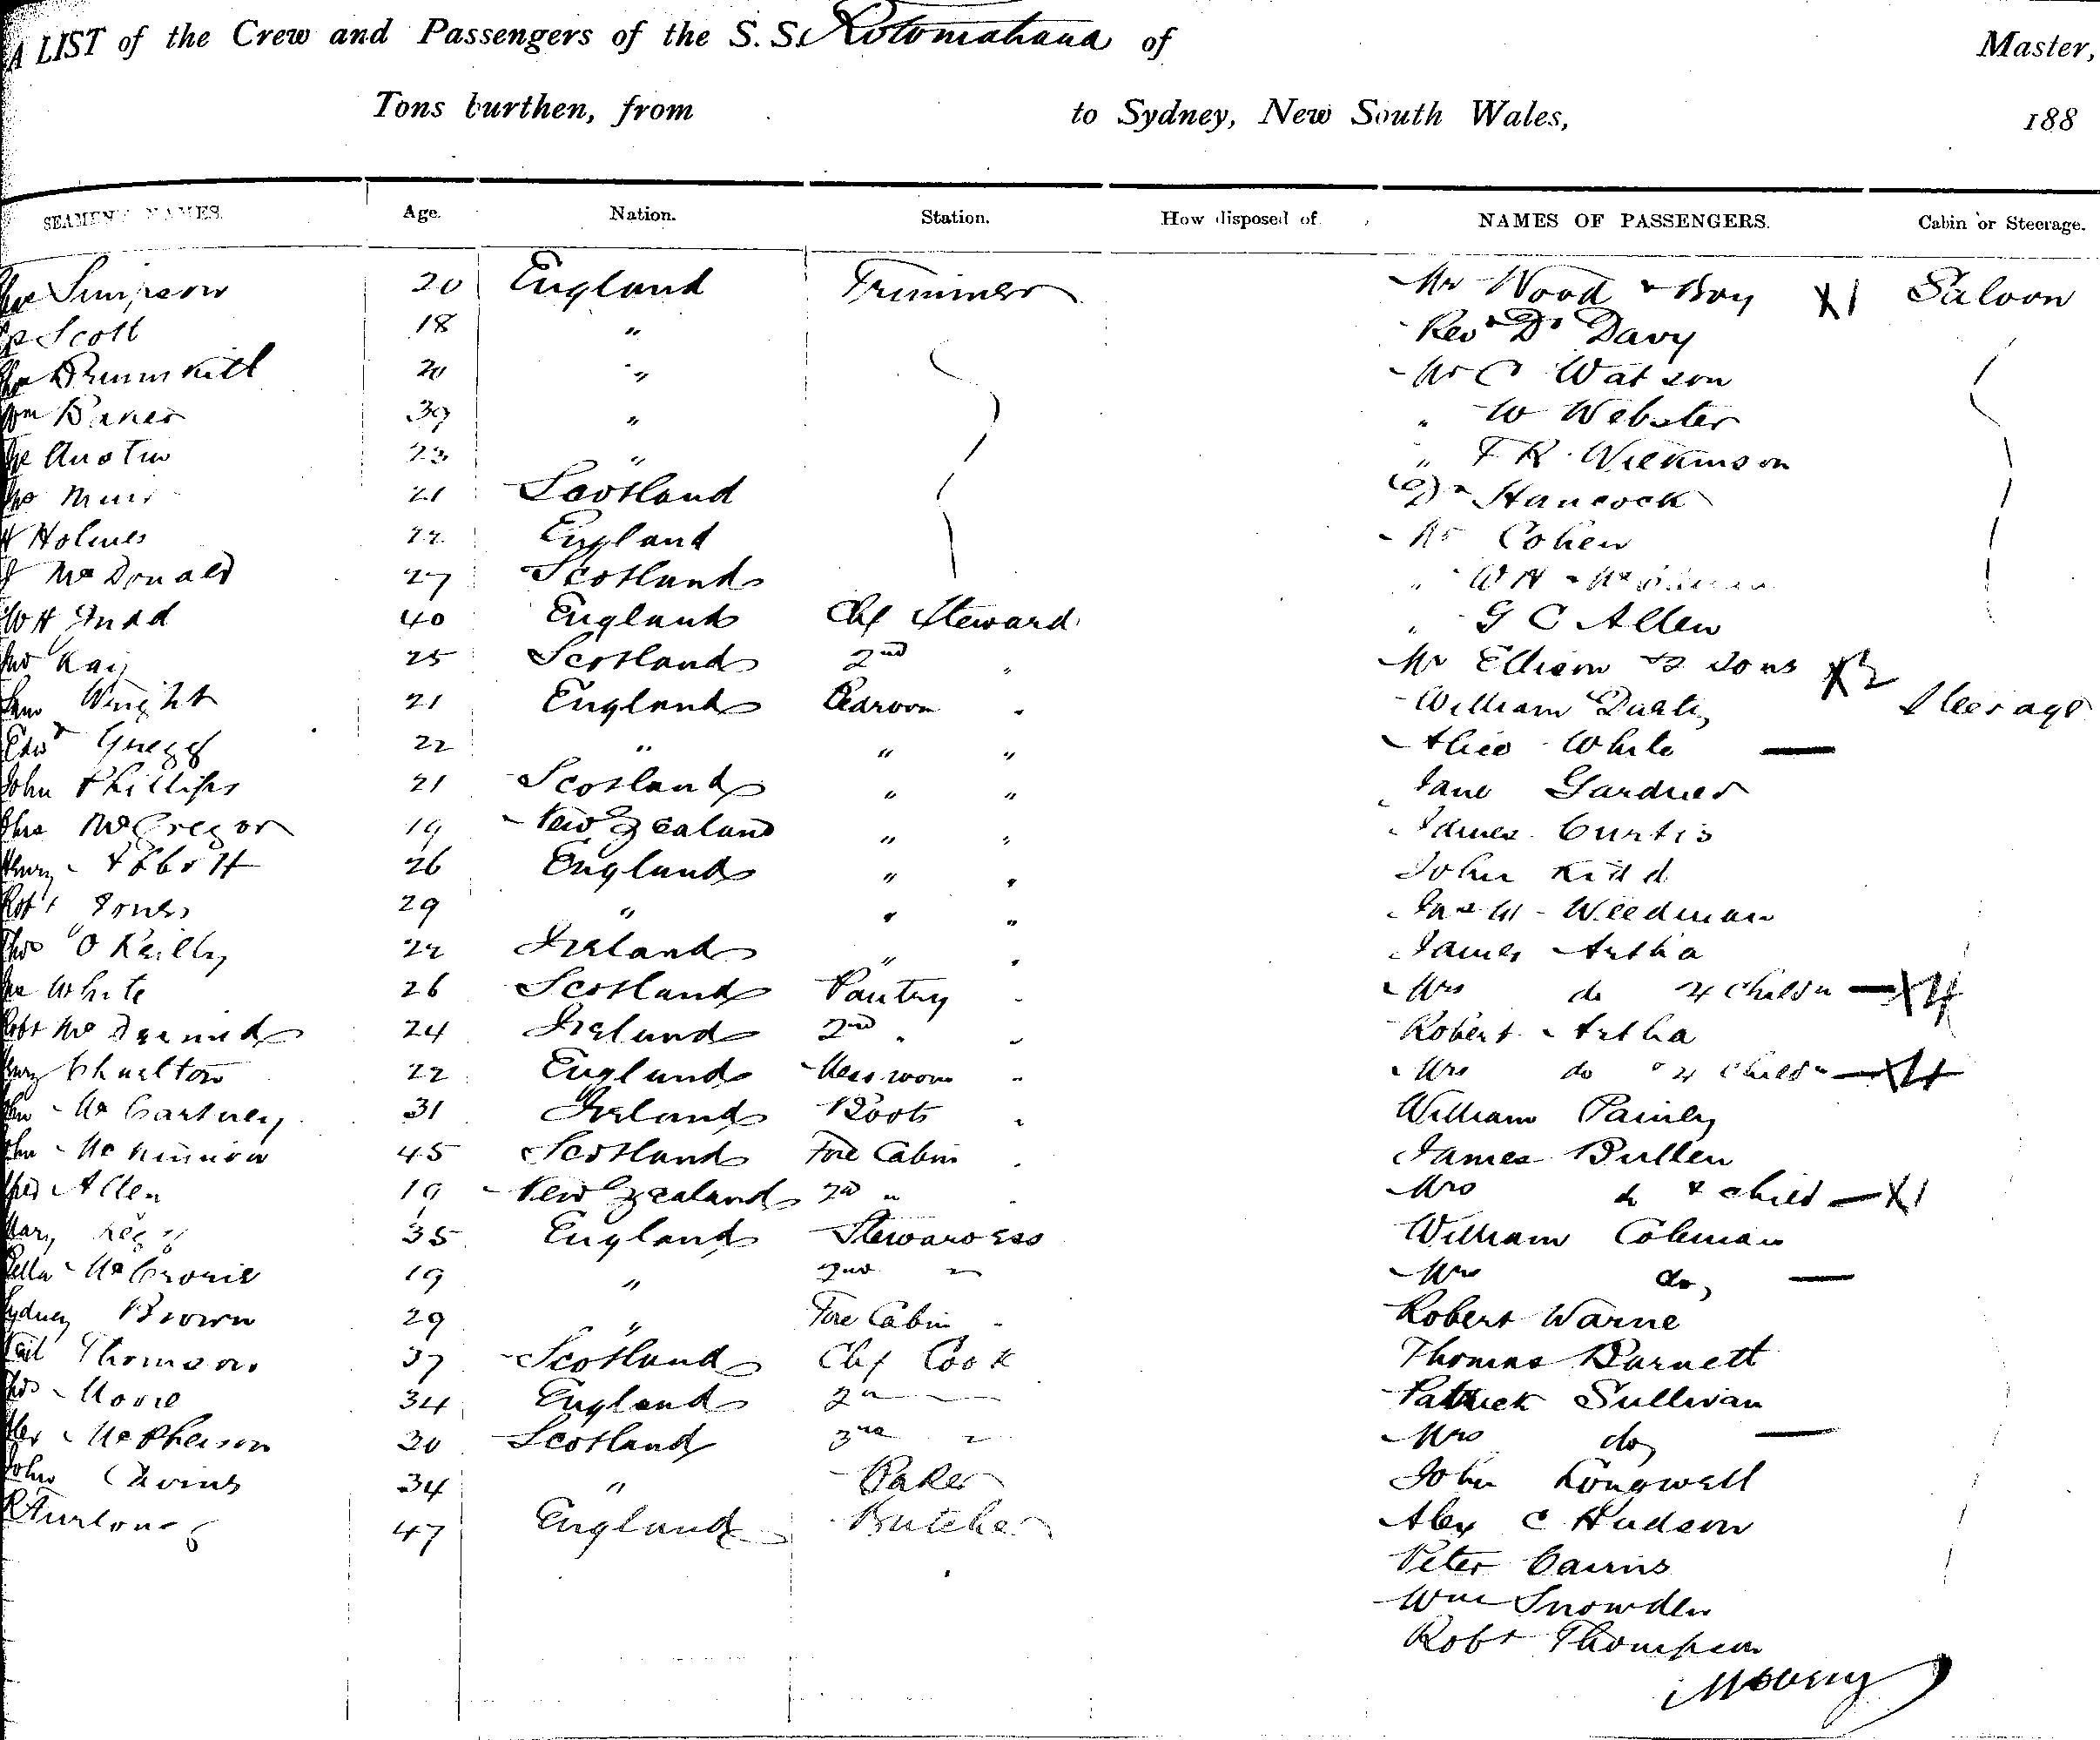 A LIST of the Crew and Passengers of the S.S. Rotomahana of Master,
Tons burthen, from to Sydney, New South Wales, 188
SEAMEN'S NAMES. Age. Nation. Station. How disposed of. NAMES OF PASSENGERS. Cabin or Steerage.
Simpson 20 England Trimmer Mr Wood & Boy X1 Saloon
Scott 18 " Revd Dr Davy
20 " Mr C Watson
Wm Baker 39 " " W Webster
Austin 23 " " F R Wilkinson
Muir 21 Scotland Hancock
H Holmes 22 England Mr Cohen
J McDonald 27 Scotland " W H
W H Judd 40 England Chf Steward " G C Allen
Jno Kay 25 Scotland 2nd " Mr Ellison & 2 sons X2
Sam Wright 21 England Bedroom " William Steerage
Edwd Gregg 22 " " " Alice White —
John Phillips 21 Scotland " " Jane Gardner
Chas McGregor 19 New Zealand " " James Curtis
Henry Abbott 26 England " " John Kidd
Robt Jones 29 " " " Jas W Weedman
Thos O'Reilly 22 Ireland " " James Artha
White 26 Scotland Pantry " Mrs do 4 Childn — X4
Robt McDermid 24 Ireland 2nd " " Robert Artha
Henry Charlton 22 England Messroom " Mrs do 4 Childn — X4
John McCartney 31 Ireland Boots " William Painley
John McKinnon 45 Scotland Fore Cabin " James Bullen
Allen 19 New Zealand 2nd " " Mrs do & child — X1
Mary Legg 35 England Stewardess William Coleman
Bella McCrorie 19 " 2nd " Mrs do —
Sydney Brown 29 " Fore Cabin " Robert Warne
Neil Thomson 37 Scotland Chf Cook Thomas Barnett
Thos Moore 34 England 2nd " Patrick Sullivan
Alex McPherson 30 Scotland 3rd " Mrs do —
John 34 " Baker John Longwell
R Furlong 47 England Butcher Alex C Hudson
Peter Cairns
Wm Snowden
Robt Thompson